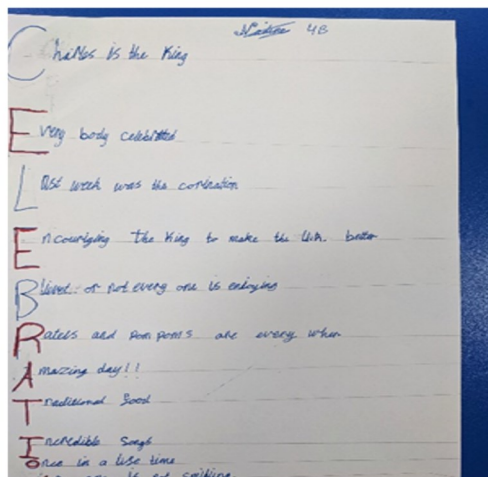 Nadine 4B
Charles is the King
Every body celebrated
Last week was the cortnation
Encouurging the King to make the U.K. better
Blived or not every one is enjoying
Ratels and pom poms are every wher
Amazzing day!!
Traditional Food
Incredible Songs
Once in a life time
is not smiling